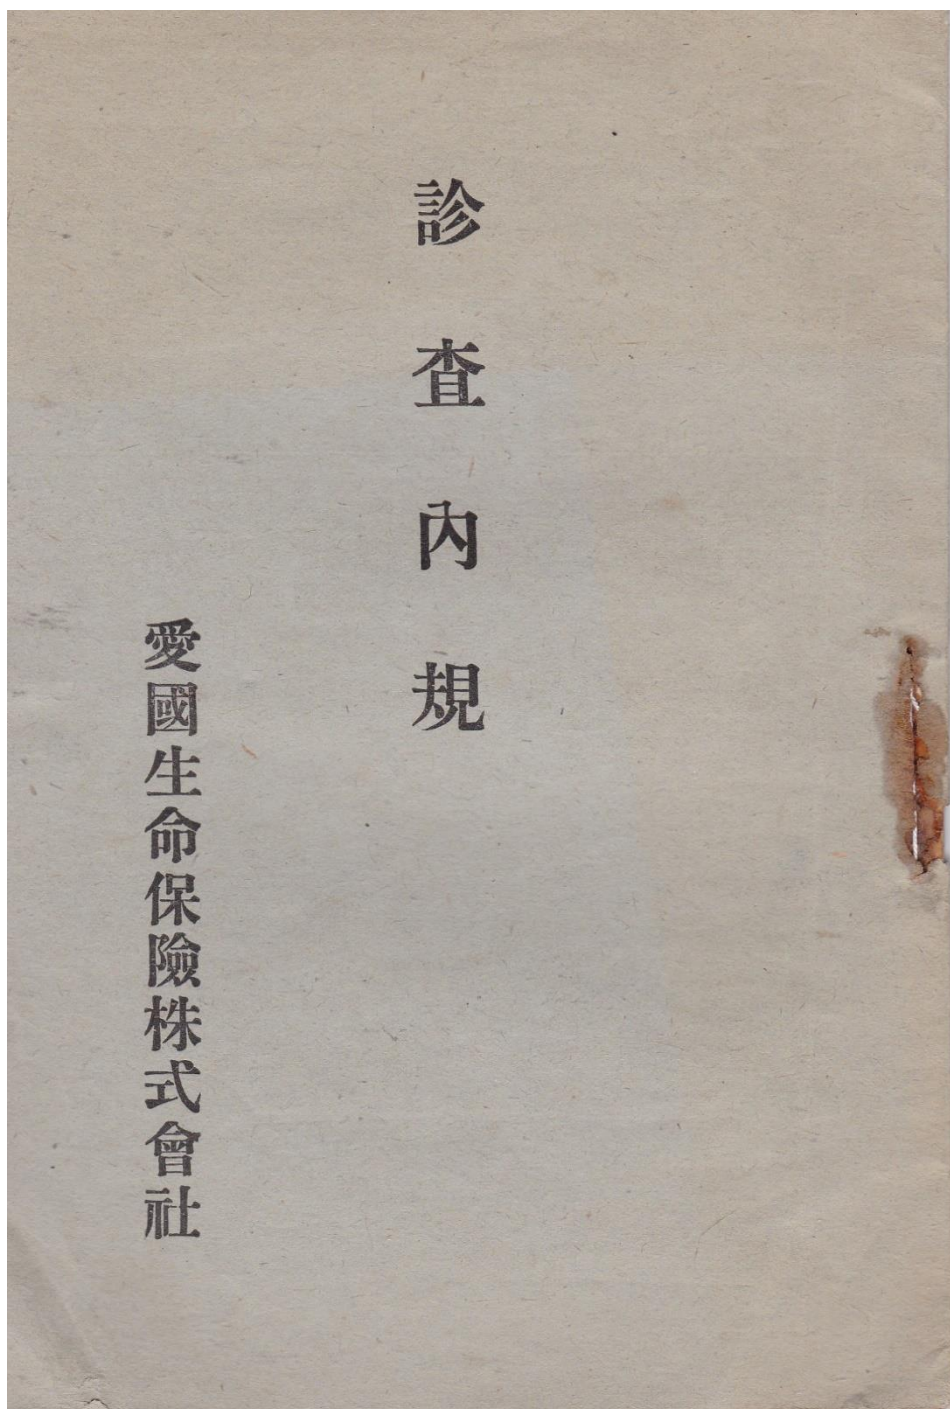 診查內規
愛國生命保險株式會社